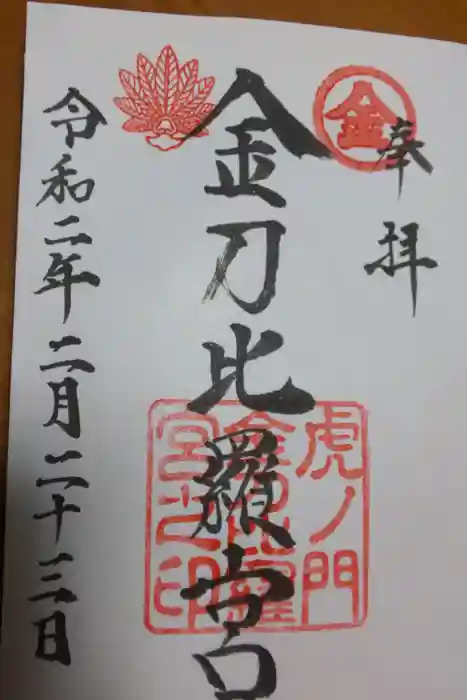 奉拝
金
金刀比羅宮
虎ノ門
金刀比羅
宮之印
令和二年二月二十三日